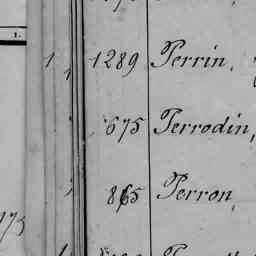 1.
1 1289 Perrin,
675 Perrodin,
865 Perron,